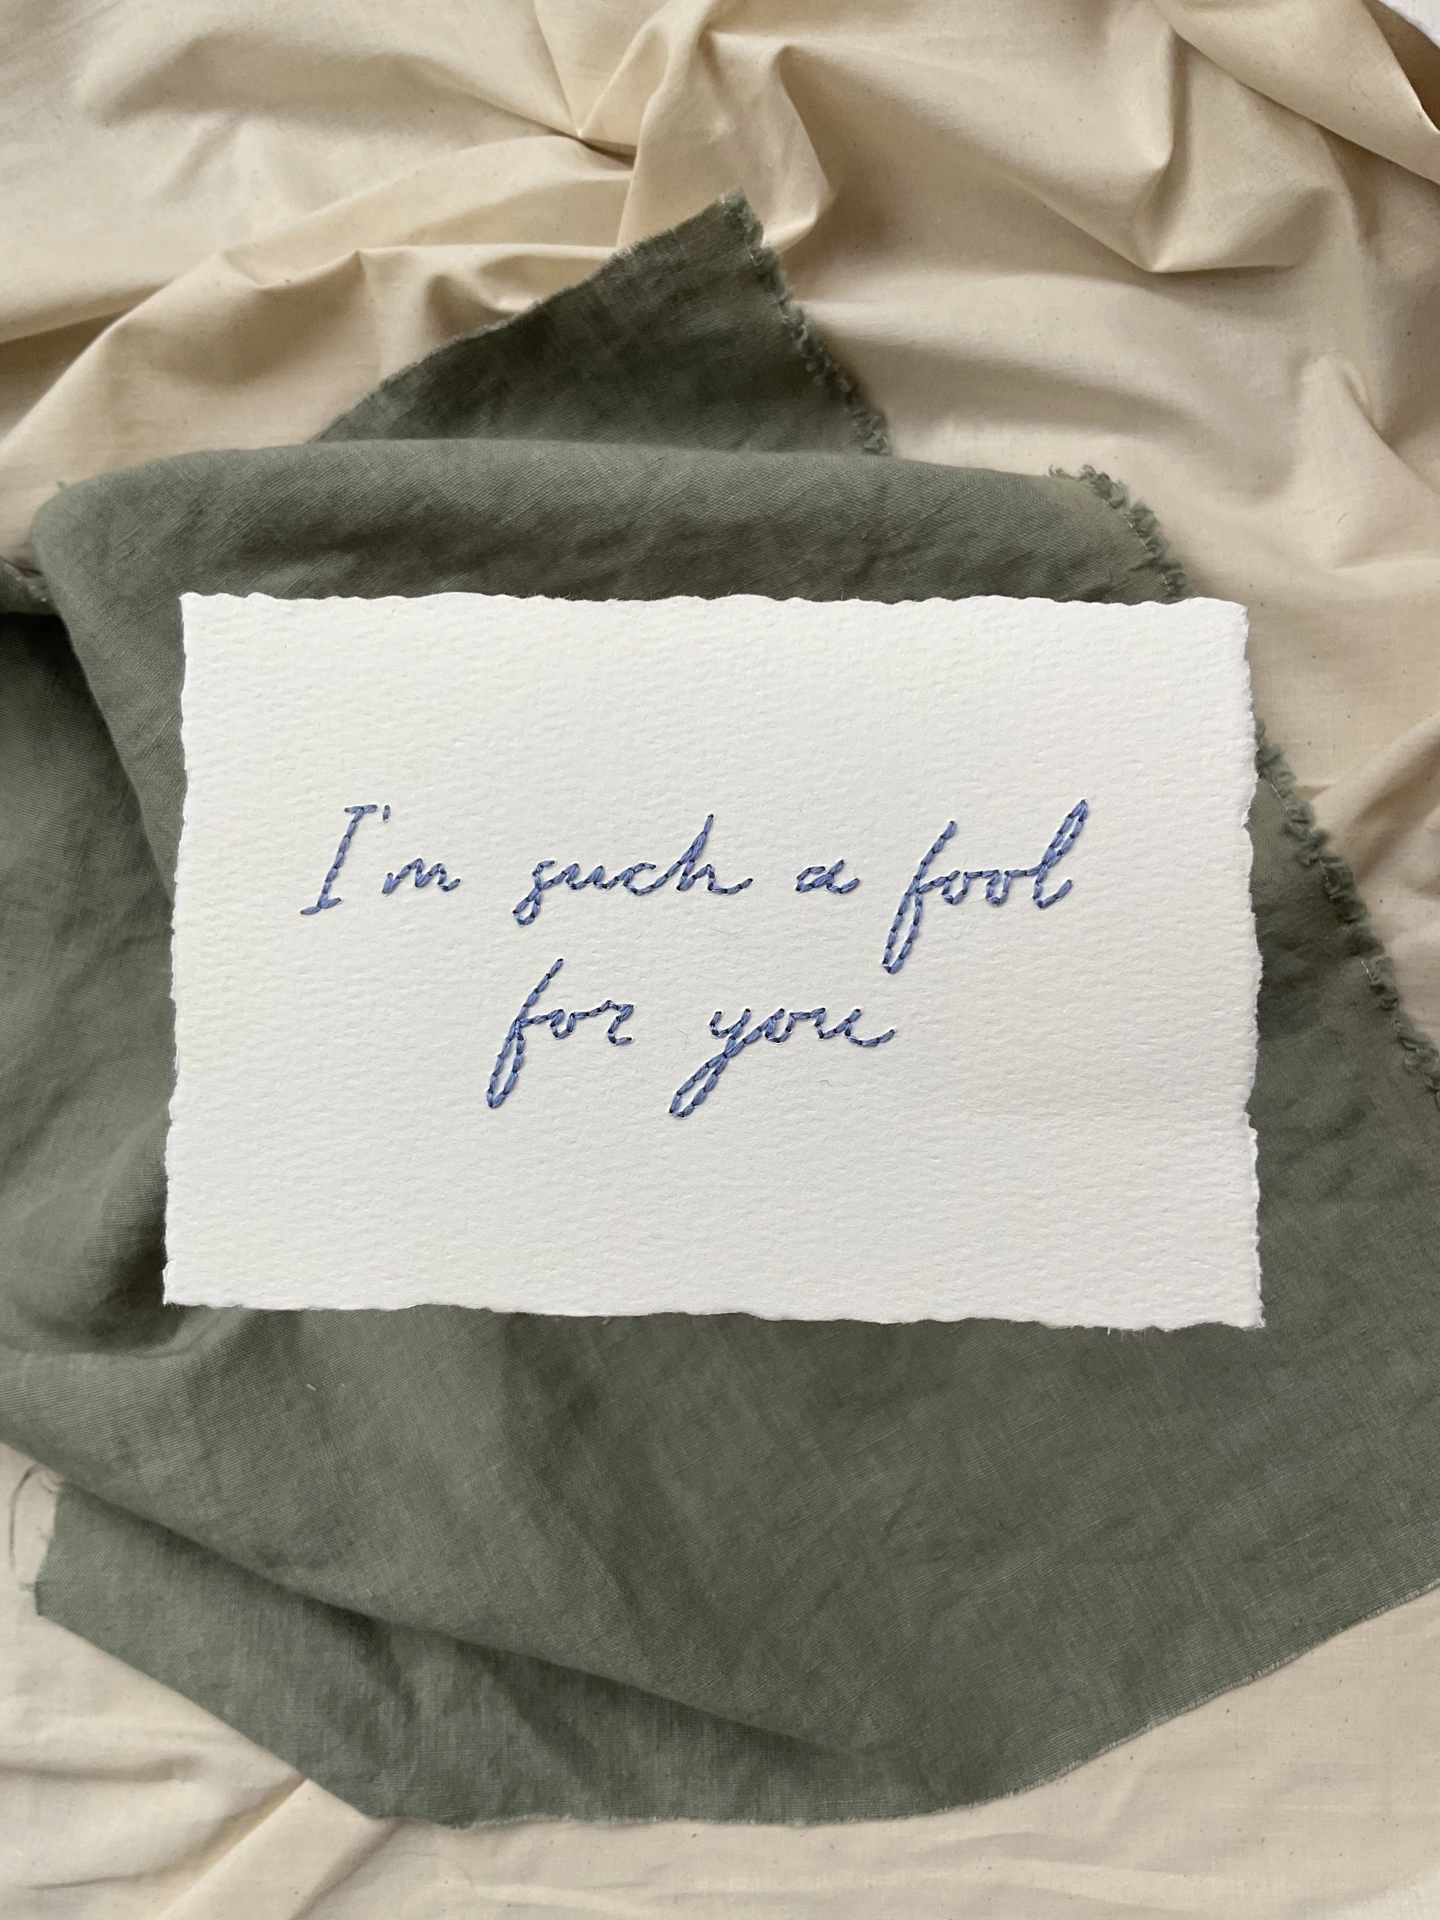 I'm such a fool
for you